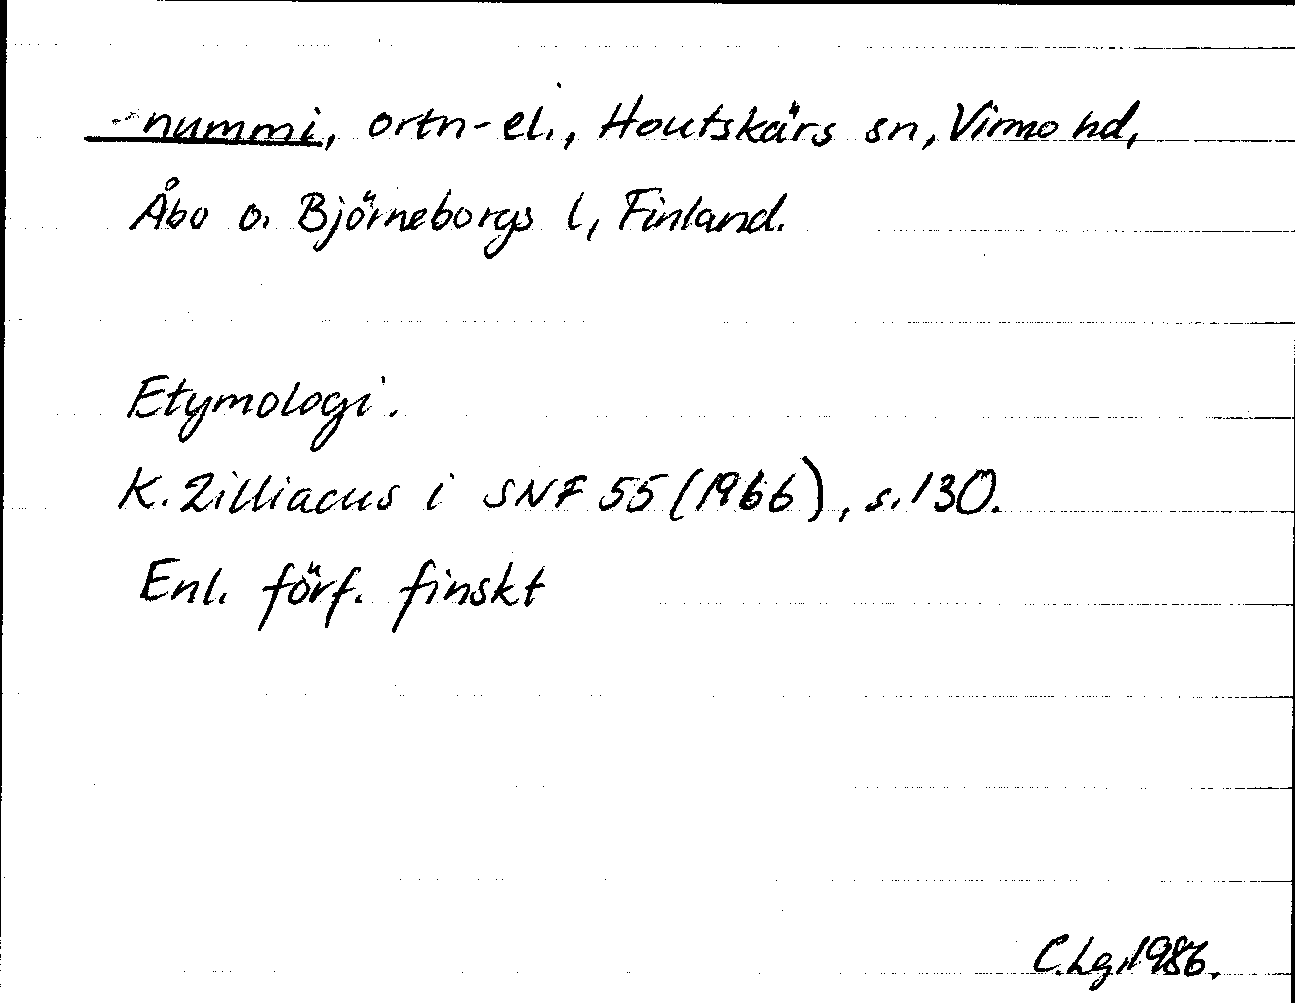 -nummi, ortn-el., Houtskärs sn, Virmo hd,
Åbo o. Björneborgs l, Finland.
Etymologi.
K. Zilliacus i SNF 55 (1966), s. 130.
Enl. förf. finskt
C.Lg. 1986.